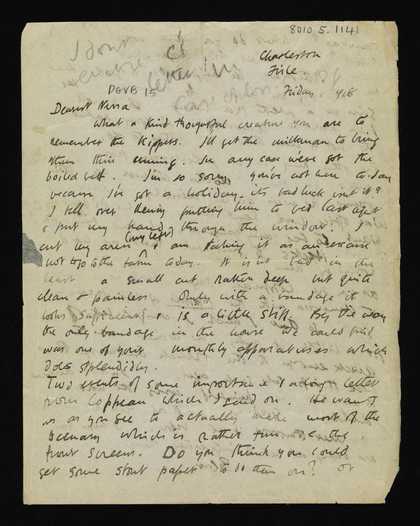 8010.5.1141
Charleston
Firle.
DGVB 15
Friday 1918
Dearest Nessa
What a kind thoughtful creature you are to
remember the Kippers. I'll get the milkman to bring
them this evening. In any case we've got the
boiled beef. I'm so sorry you're not here to-day
because I've got a holiday – its bad luck isn't it?
I fell over Henry putting him to bed last night
& put my hand (my left) through the window. I
cut my and I am taking it as an excuse
not to go to the farm today. It is not bad in the
least a small cut rather deep but quite
clean & painless. Only with a bandage it
looks & is a little stiff. By the way
the only bandage in the house we could find
was one of your monthly which
does splendidly.
Two events of some importance I a long letter
from Coppeau which I send on. He wants
us as you see to actually most of the
scenery which is rather the
front screens. Do you think you could
get some stout paper to do them on? or